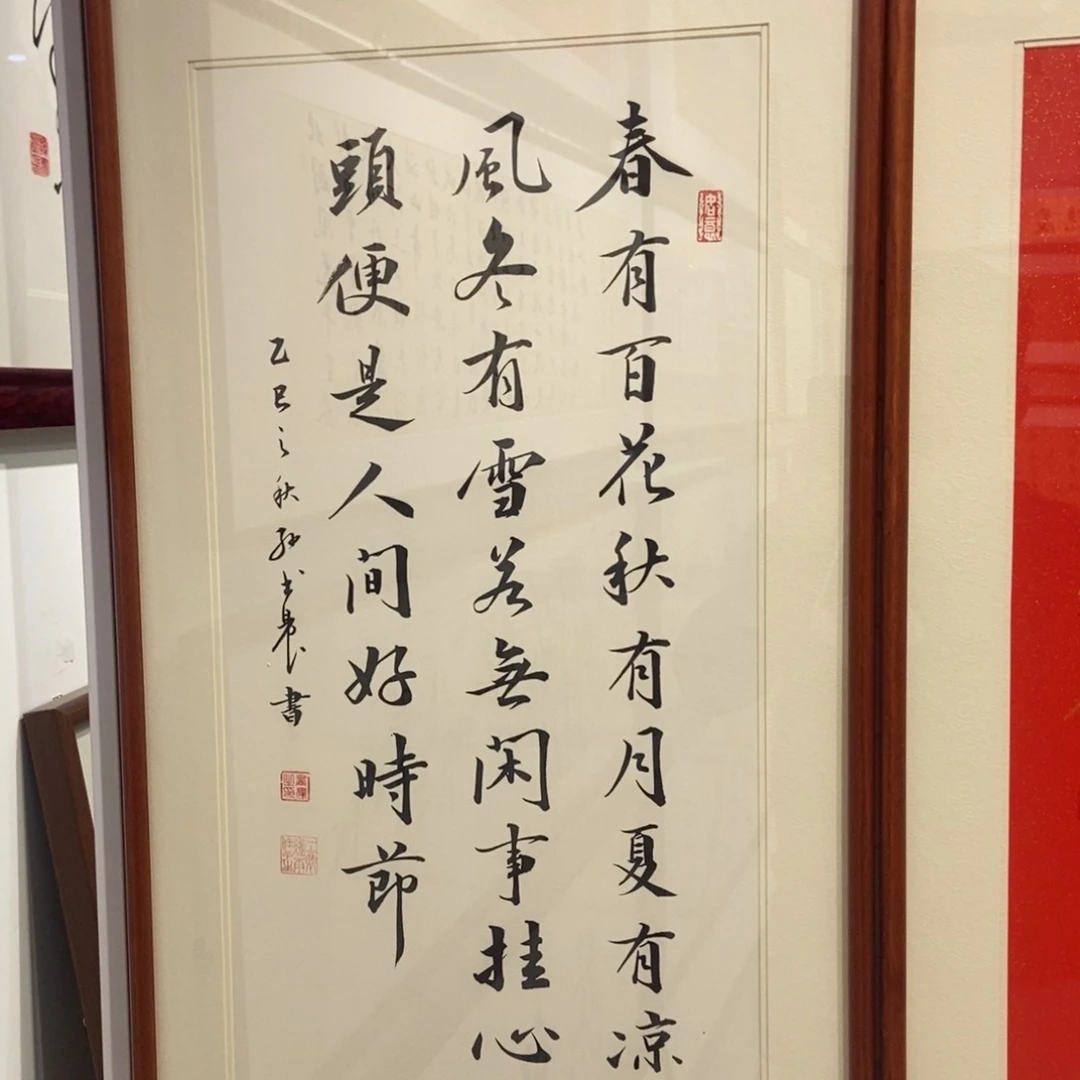 春有百花秋有月夏有凉
風冬有雪若無閑事挂心
頭便是人间好時節
乙巳之秋孙士晨書